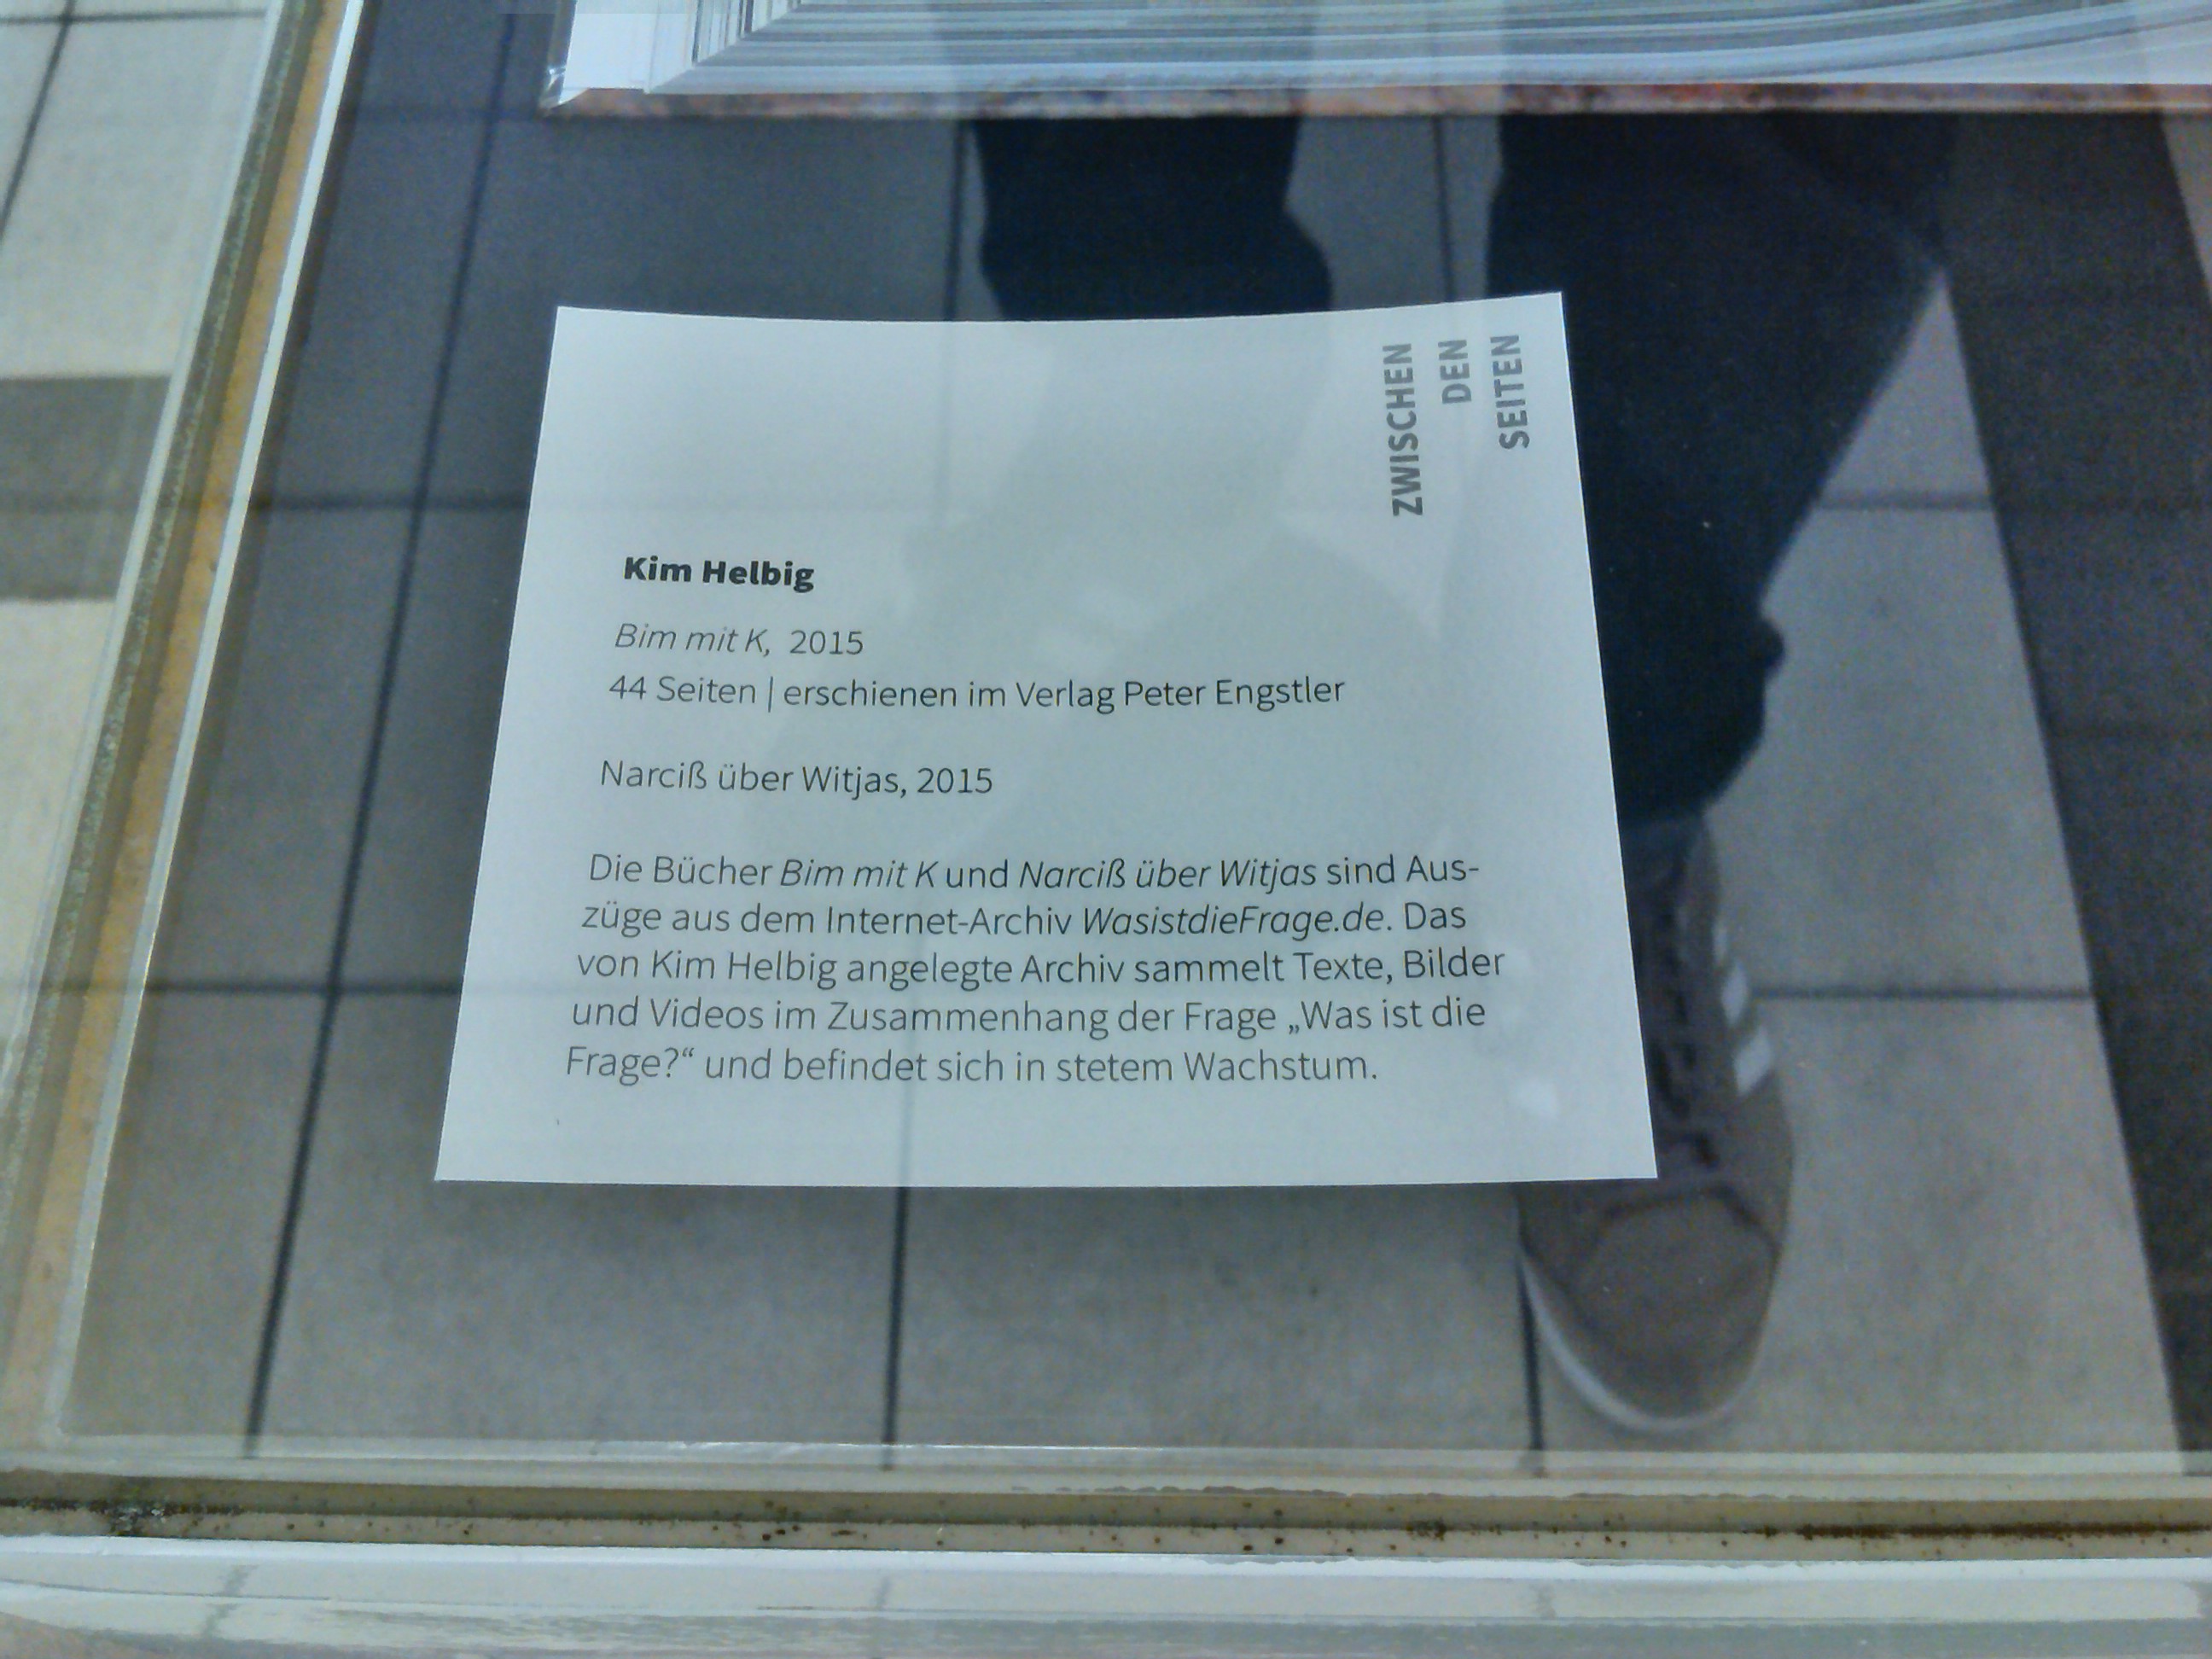 ZWISCHEN
DEN
SEITEN
Kim Helbig
Bim mit K, 2015
44 Seiten | erschienen im Verlag Peter Engstler
Narciß über Witjas, 2015
Die Bücher Bim mit K und Narciß über Witjas sind Aus-
züge aus dem Internet-Archiv WasistdieFrage.de. Das
von Kim Helbig angelegte Archiv sammelt Texte, Bilder
und Videos im Zusammenhang der Frage „Was ist die
Frage?“ und befindet sich in stetem Wachstum.